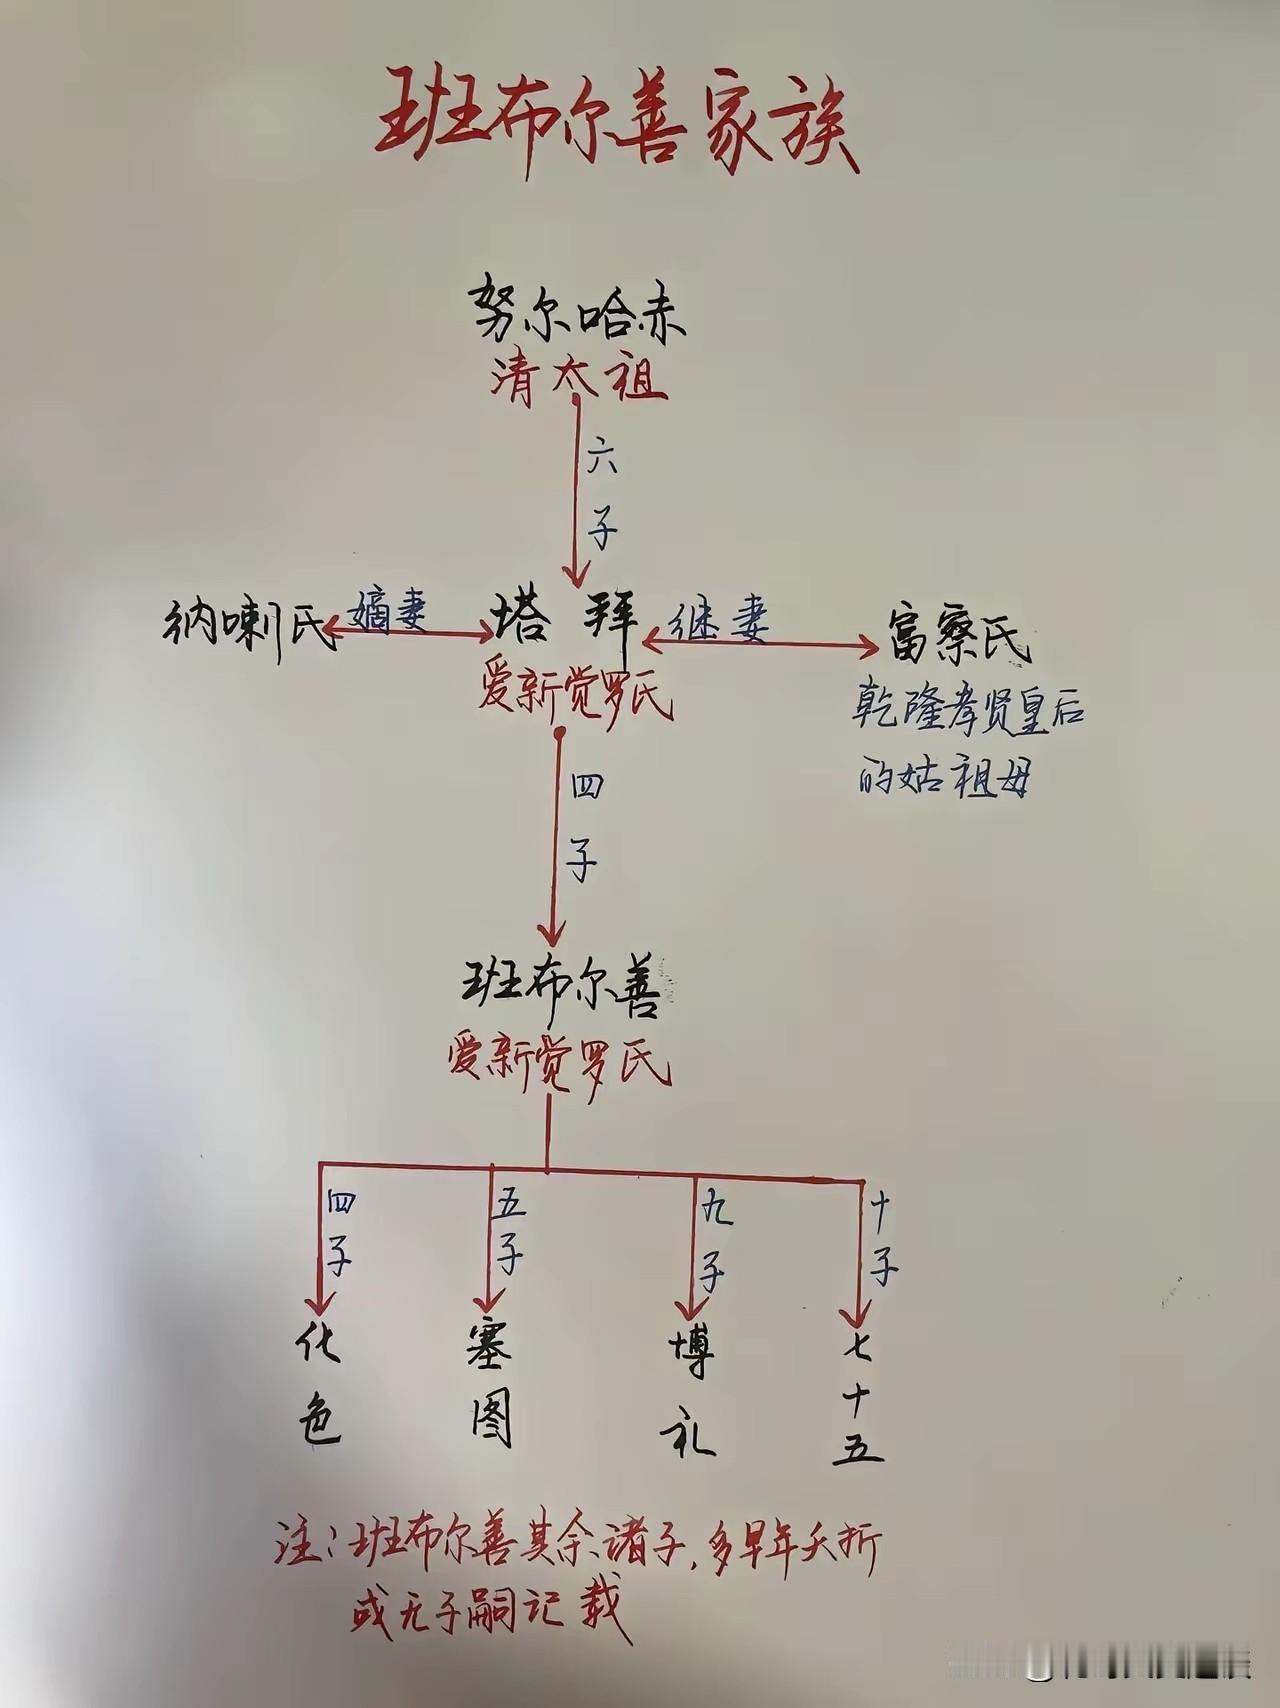 班布尔善家族
努尔哈赤
清太祖
六子
纳喇氏 嫡妻 塔拜 继妻 富察氏
爱新觉罗氏
乾隆孝贤皇后
的姑祖母
四子
班布尔善
爱新觉罗氏
四子 五子 九子 十子
化色 塞图 博礼 七十五
注:班布尔善其余诸子,多早年夭折
或无子嗣记载